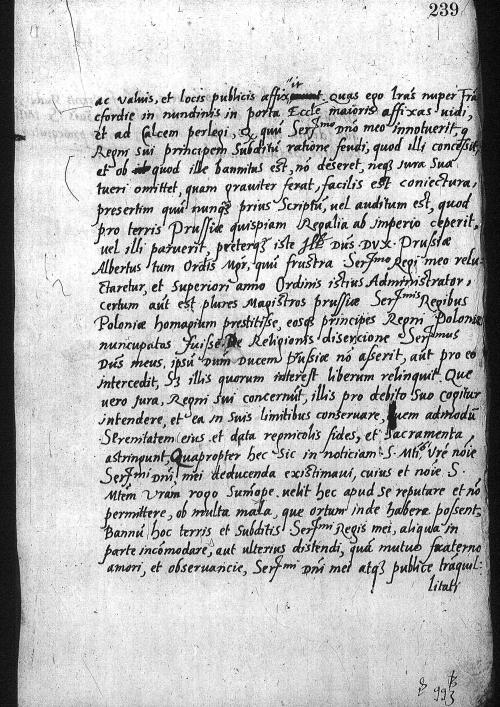 239
ac valuis, et locis publicis affixit. Quas ego lras nuper Frā
cfordie in nundinis in porta Eccle maioris affixas uidi,
et ad calcem perlegi, Q. quū Serſmo Dno meo innotuerit, q
Regni sui principem Subditū ratione feudi, quod illi concessit,
et ob quod ille bannitus est, nō deseret, neqз iura sua
tueri omittet, quam grauiter ferat, facilis est coniectura,
presertim quū nunqз prius Scriptū, uel auditum est, quod
pro terris Prussiæ quispiam Regalia ab imperio ceperit,
uel illi paruerit, preterqз iste Dūs DVX Prussiæ
Albertus tum Ordīs Mgr, quū frustra Serſmo Regi meo relu-
ctaretur, et Superiori anno Ordinis istius Administrator,
certum aūt est plures Magistros prussiæ Serſmis Regibus
Poloniæ homagium prestitisse, eosqз principes Regni Poloniæ
nuncupatos fuisse. De Religionis discrcione Serſmus
Dūs meus, ipsū Dūm Ducem Prussiæ nō asserit, aūt pro eo
intercedit, Sз illis quorum interest liberum relinquit. Que
uero iura, Regni sui concernūt, illis pro debito suo cogitur
intendere, et ea in suis limitibus conseruare, quem admodū
Serenitatem eius et data repnicolis fides, et Sacramenta
astringunt, Quapropter hec sic in noticiam S. Mtis Vrē noīe
Serſmi Dni mei deducenda existimaui, cuius et noīe S.
Mtēm Vram rogo Sumope. uelit hec apud se reputare et nō
permittere, ob multa mala, que ortum inde habere possent,
Bannū hoc terris et Subditis Serſmi Regis mei, aliqua in
parte incōmodare, aut ulterius distendi, quā mutuo fraterno
amori, et obseruancie, Serſmi Dni mei atqз publice trāquil-
litati
993